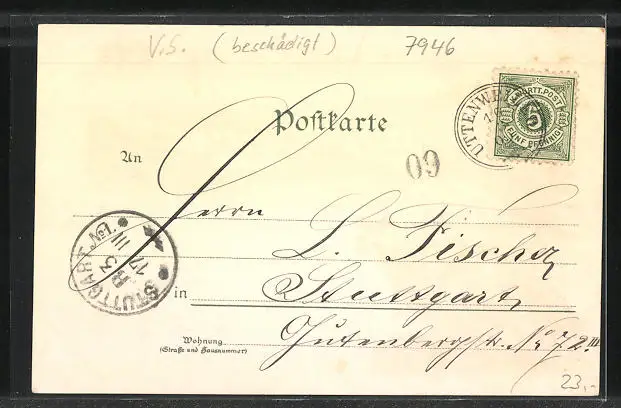 V.S. (beschädigt) 7946
Postkarte
K. WÜRTT. POST
5
FÜNF PFENNIG
UTTENWE
An
60
Herrn
L. Fischer
STUTTGART No1.
17 III
in Stuttgart,
Wohnung
(Straße und Hausnummer)
Gutenbergstr. No 72 III
23,-